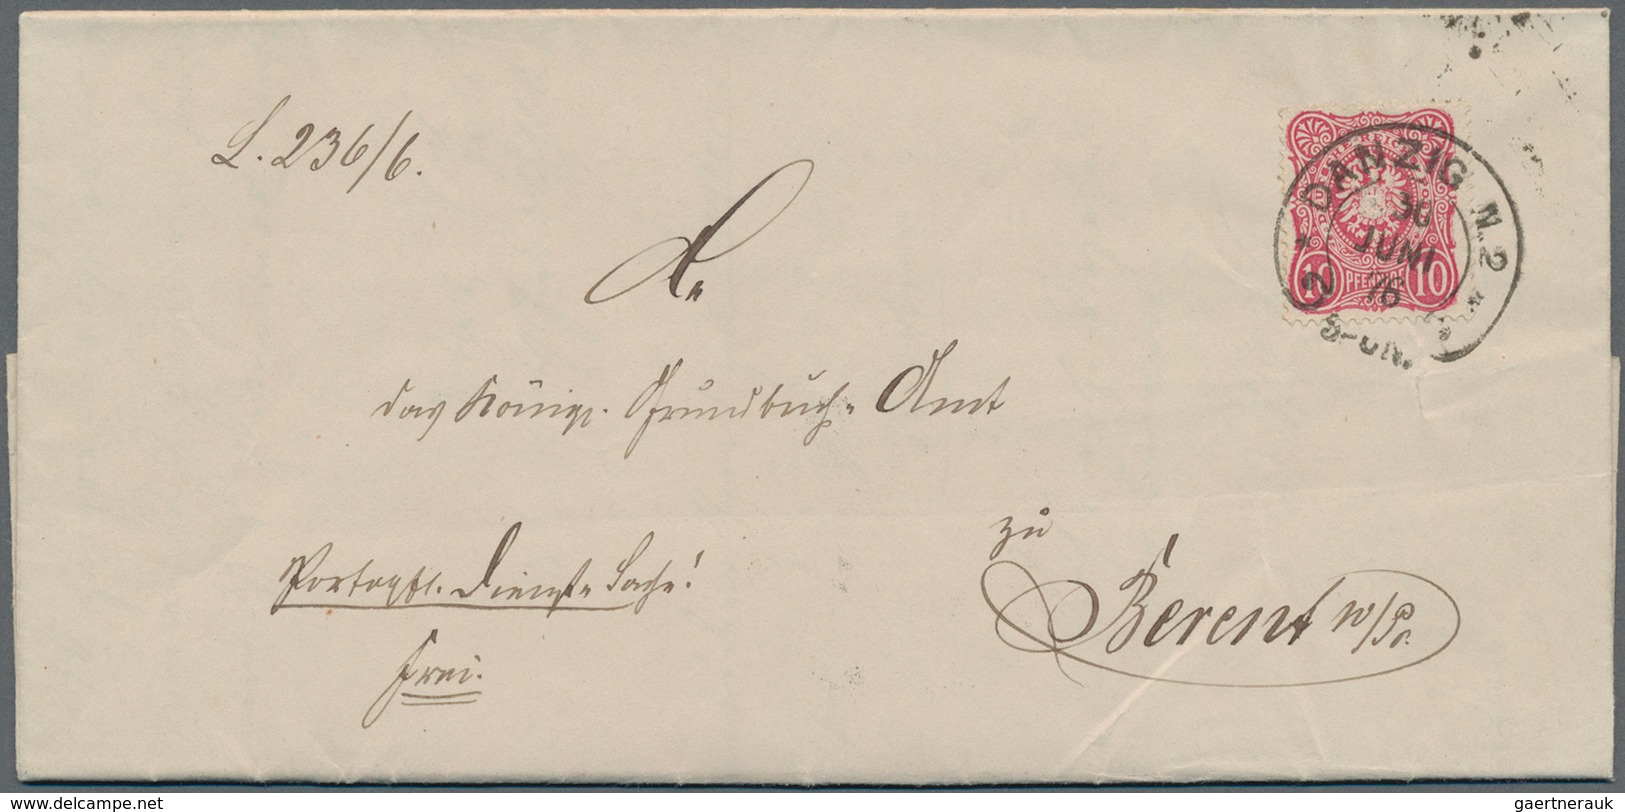 L. 236/6.
DEUTSCHE REICHS
10 PFENNIGE 10
DANZIG N. 2
30
JUNI
76
2 5-6N.
An
das Königl. Grundbuch-Amt
zu
Berent w/Pr.
Portopfl. Dienst-Sache!
frei.
delcampe.net
gaertnerauk